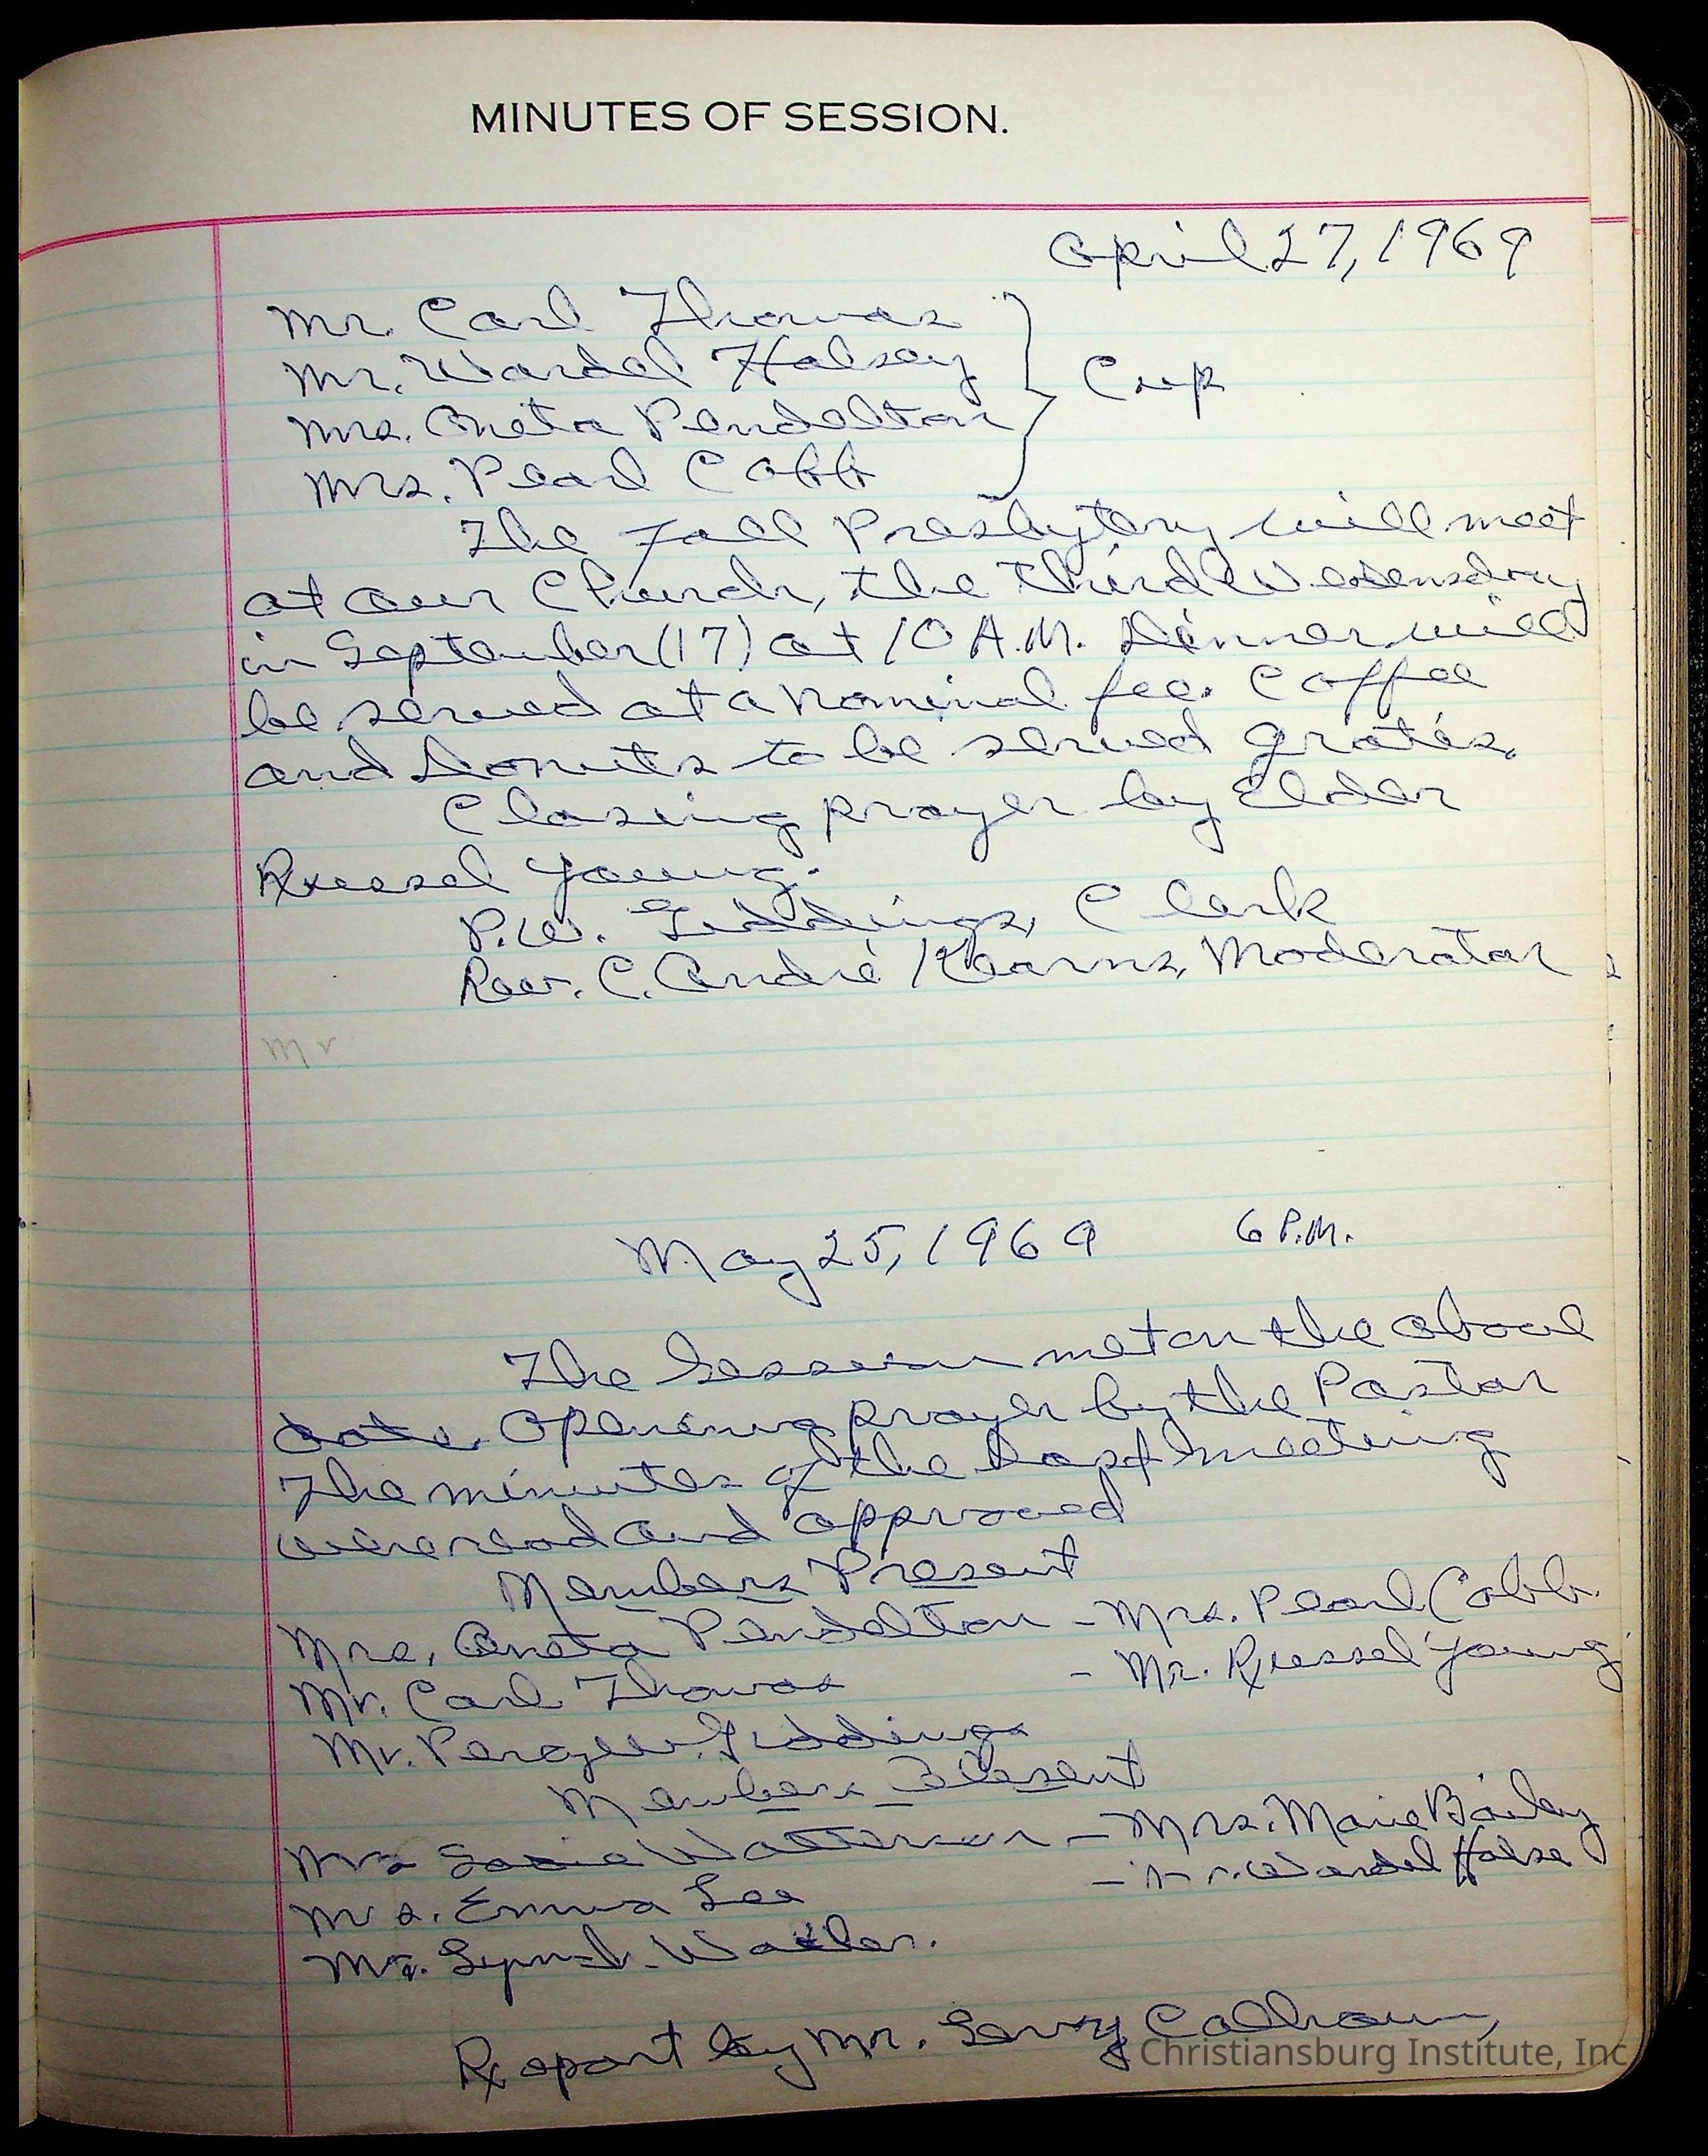 MINUTES OF SESSION.
April 27, 1969
Mr. Carl Thomas
Mr. Wardel Halsey
Cup
Mrs. Oneta Pendelton
Mrs. Pearl Cobb
The Fall Presbytery will meet
at our Church, the third Wedensday
in September (17) at 10 A.M. Dinner will
be served at a nominal fee. Coffee
and Donuts to be served gratis.
Closing prayer by Elder
Russel Young.
P.W. Giddings, Clerk
Rev. C. André Kearns, Moderator
Mr
May 25, 1969 6 P.M.
The Session met on the above
date. Opening prayer by the Pastor
The minutes of the last meeting
were read and approved
Members Present
Mrs. Oneta Pendelton - Mrs. Pearl Cobb.
Mr. Carl Thomas - Mr. Russel Young
Mr. Giddings
Members Absent
Mrs Watterson - Mrs. Marie Bailey
Mrs. Emma Lee - Mr. Wardel Halse
Mr.
Report by Mr. Calhoun,
Christiansburg Institute, Inc